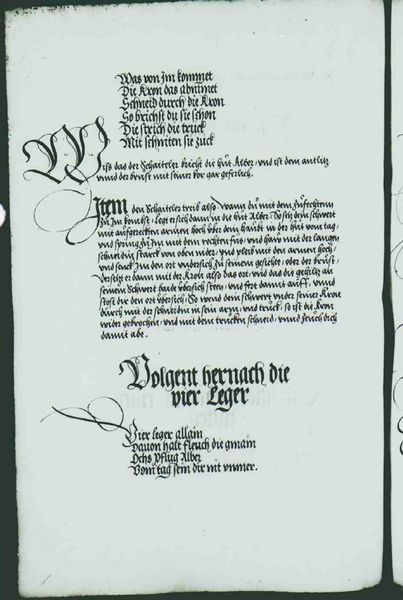 Was von im kommet
Die Kron das abnimet
Schneid durch die Kron
So brichst du sie schon
Die strich die truck
Mit schniten sie zuck
Wiß das der Schaittler bricht die hut Alber, vnd ist dem antlitz
vnnd der brust mit seiner kör gar geferlich.
Item den Schaittler treib also, wann du mit dem zufechten
zu Im kombst, leger sich dann in die hut Alber, So setz dein schwert
mit aufgereckten armen hoch über dein haubt in der hut vom tag,
vnd spring zu Im mit dem rechten fuß, vnd haw mit der langen
schneiden starck von oben nider, vnd pleib mit den armen hoch,
vnd senck Im den ort vndersich zu seinem gesicht, oder der brust,
versetzt er dann mit der Kron also das ort, vnd das gehiltz an
seinem Schwert baide übersich steen, vnd fert damit auff, vnnd
stost dir den ort übersich, So wend dein schwert vnder seiner Kron
durch mit der schneiden in sein arm, vnd truck, so ist die Kron
wider gebrochen, vnd mit dem trucken schneid, vnnd zeuch dich
damit abe.
Volgent hernach die
vier Leger
Vier leger allain
Dauon halt fleuch die gmain
Ochs Pflug Alber
Vom tag sein dir nit vnmer.